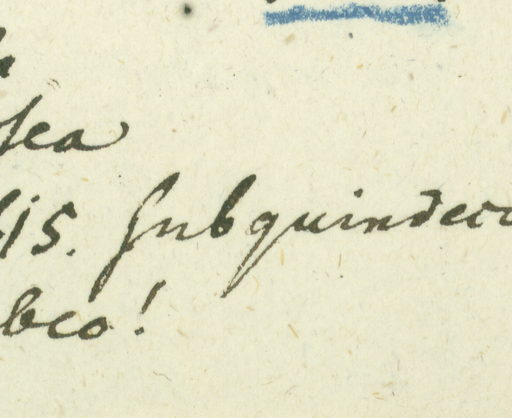 sea
15. Subquindeci
beo!